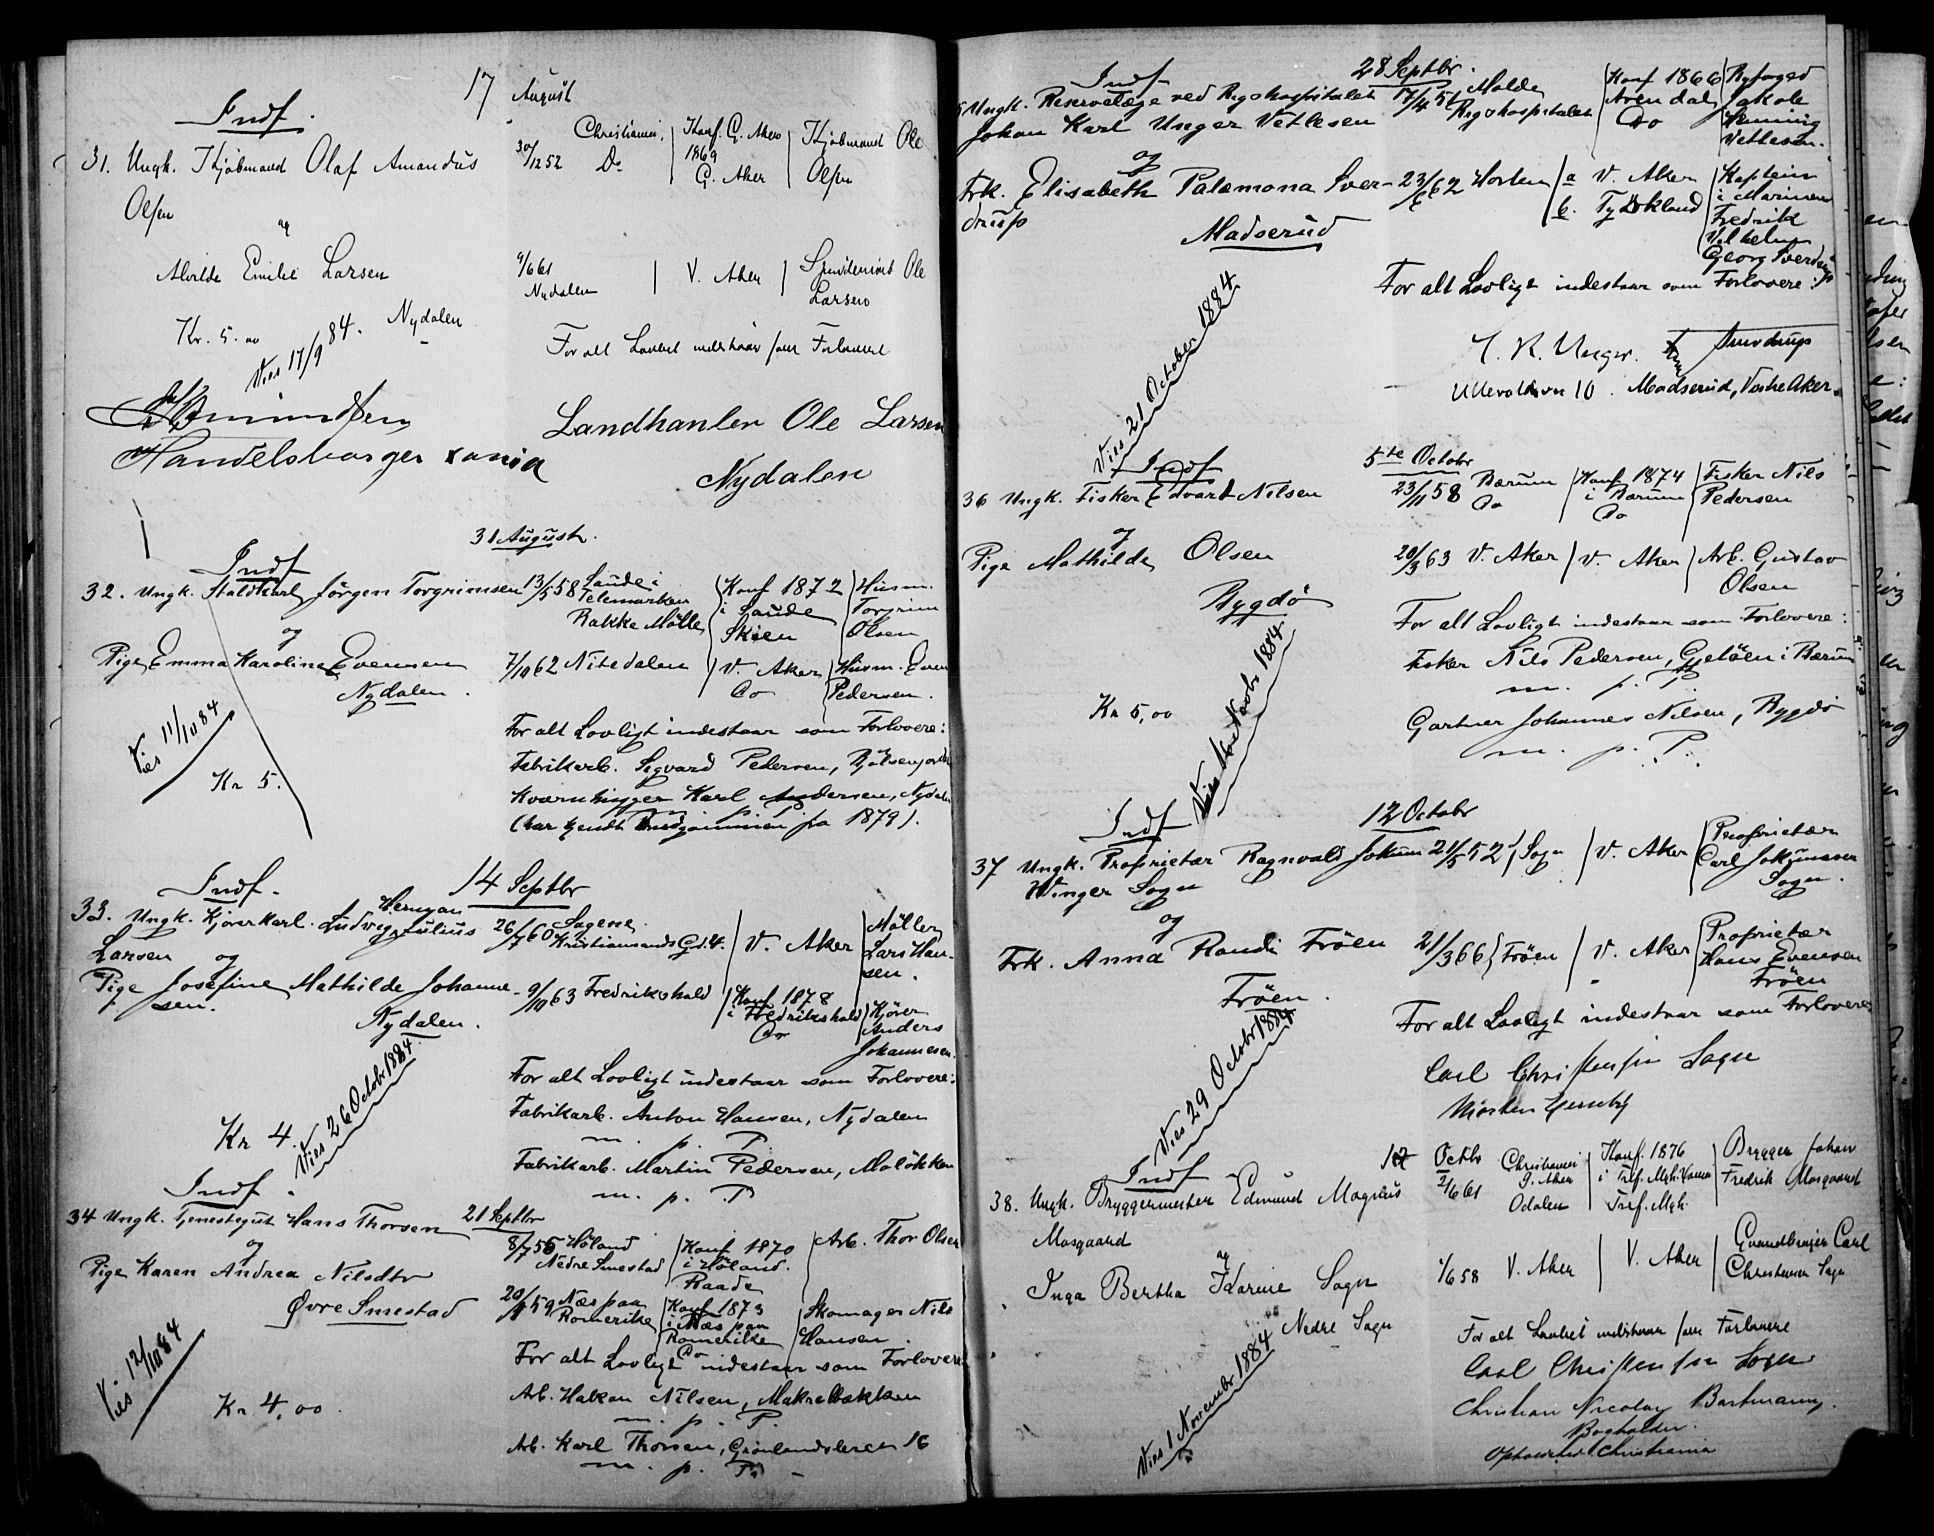 17 August
Indf.
31. Ungk. Kjøbmand Olaf Amandus
Olsen
30/12 52
Christiania,
Do
Konf. G. Aker
1869
G. Aker
Kjøbmand Ole
Olsen
og
Alvilde Emilie Larsen
9/6 61
Nydalen
V. Aker
Ole
Larsen
Kr. 5.00
Nydalen
Viet 17/9 84.
For alt Lovligt indestaar som Forlovere
Handelsborger
Landhanler Ole Larsen
Nydalen
31 August.
Indf
32. Ungk. Staldkarl Jørgen Torgrimsen 13/5 58 Saude i
Telemarken
Bakke Mølle
Konf 1872
i Saude
Skien
Husm.
Torgrim
Olsen
og
Pige Emma Karoline Evensen 7/10 62 Nitedalen
V. Aker
Do
Husm. Even
Pedersen.
Nydalen.
Vies 11/10 84
Kr 5.
For alt Lovligt indestaar som Forlovere:
Fabrikarb. Sigvard Pedersen,
Karl Andersen, Nydalen
m. p. P.
(har kendt fra 1879).
14 Septbr
Indf.
33. Ungk. Kjørerkarl. Ludvig Julius
Herman
26/7 60 Sagene.
Kristiansands Gd. 4.
V. Aker
Møller
Lars Han-
sen.
Larsen og
Pige Josefine Mathilde Johanne-
sen.
9/10 63 Fredrikshald
Konf 1878
i Fredrikshald
Do
Kjører
Anders
Johannesen.
Nydalen.
Vies 26 Octobr 1884.
Kr 4.
For alt Lovligt indestaar som Forlovere:
Fabrikarb. Anton Hansen, Nydalen
m. p. P.
Fabrikarb. Martin Pedersen, Maløkken
m. p. P
Indf.
21 Septbr
34 Ungk. Tjenestegut Hans Thorsen
8/7 55 Høland
Nedre Smestad
Konf 1870
i Høland.
Raade
Arb. Thor Olsen
og
Pige Karen Andrea Nilsdtr
Næs paa
Romerike
Konf 1873
i Næs paa
Romerike
Do
Skomager Nils
Hansen.
Øvre Smestad
Vies 12/10 84
Kr 4,00
For alt Lovligt indestaar som Forlovere
Arb. Hakon Nilsen, Makrelbækken
m. p. P.
Arb. Karl Thorsen, Grønlandsleret 16
m. p. P.
28 Septbr.
Indf
Ungk. Reservelæge ved Rigshospitalet
Johan Karl Unger Vetlesen
17/4 51 Molde
Rigshospitalet
Konf 1866
Arendal
Do
Byfoged
Jakob
Henning
Vetlesen.
og
Frk. Elisabeth Palæmona Sver-
drup
23/6 62 Horten
a V. Aker
b. Tydskland
Kaptein
i Marinen
Fredrik
Vilhelm
Georg Sverdrup
Madserud
Vies 21 October 1884
For alt Lovligt indestaar som Forlovere:
Unger.
Sverdrup
Ullevoldsvn 10. Madserud, Vestre Aker.
5te Octobr
Indf
36 Ungk. Fisker Edvart Nilsen
23/11 58 Bærum
Do
Konf 1874
i Bærum
Do
Fisker Nils
Pedersen
og
Pige Mathilde Olsen
20/3 63 V. Aker
V. Aker
Arb. Gustav
Olsen
Bygdø
Kr 5,00
For alt Lovligt indestaar som Forlovere:
Fisker Nils Pedersen, Gjetøen i Bærum
m. p. P.
Gartner Johannes Nilsen, Bygdø
m. p. P.
12 Octobr
Indf
37 Ungk. Proprietær Ragnvald Jokum
Winger Sogn
21/5 52 Sogn
V. Aker
Proprietær
Carl
Sogn.
og
Frk. Anna Randi Frøen
21/3 66 Frøen
V. Aker
Proprietær
Hans Evensen
Frøen
Frøen.
Vies 29 Octobr 1884
For alt Lovligt indestaar som Forlovere
Carl Christensen Sogn
Morten
Indf
Octbr
38. Ungk. Bryggermester Edmund Magnus
Mosgaard
2/6 61
Christiania
G. Aker
Odalen
Konf. 1876
i Tref. Mgh.
Tref. Mgh.
Brygger Johan
Fredrik Mosgaard
og
Inga Bertha Karine Sogn
1/6 58 V. Aker
V. Aker
Grundbruger Carl
Christensen Sogn
Nedre Sogn
Vies 1 November 1884
For alt Lovligt indestaar som Forlovere
Carl Christensen Sogn
Christian Nicolay
Bogholder
Christiania